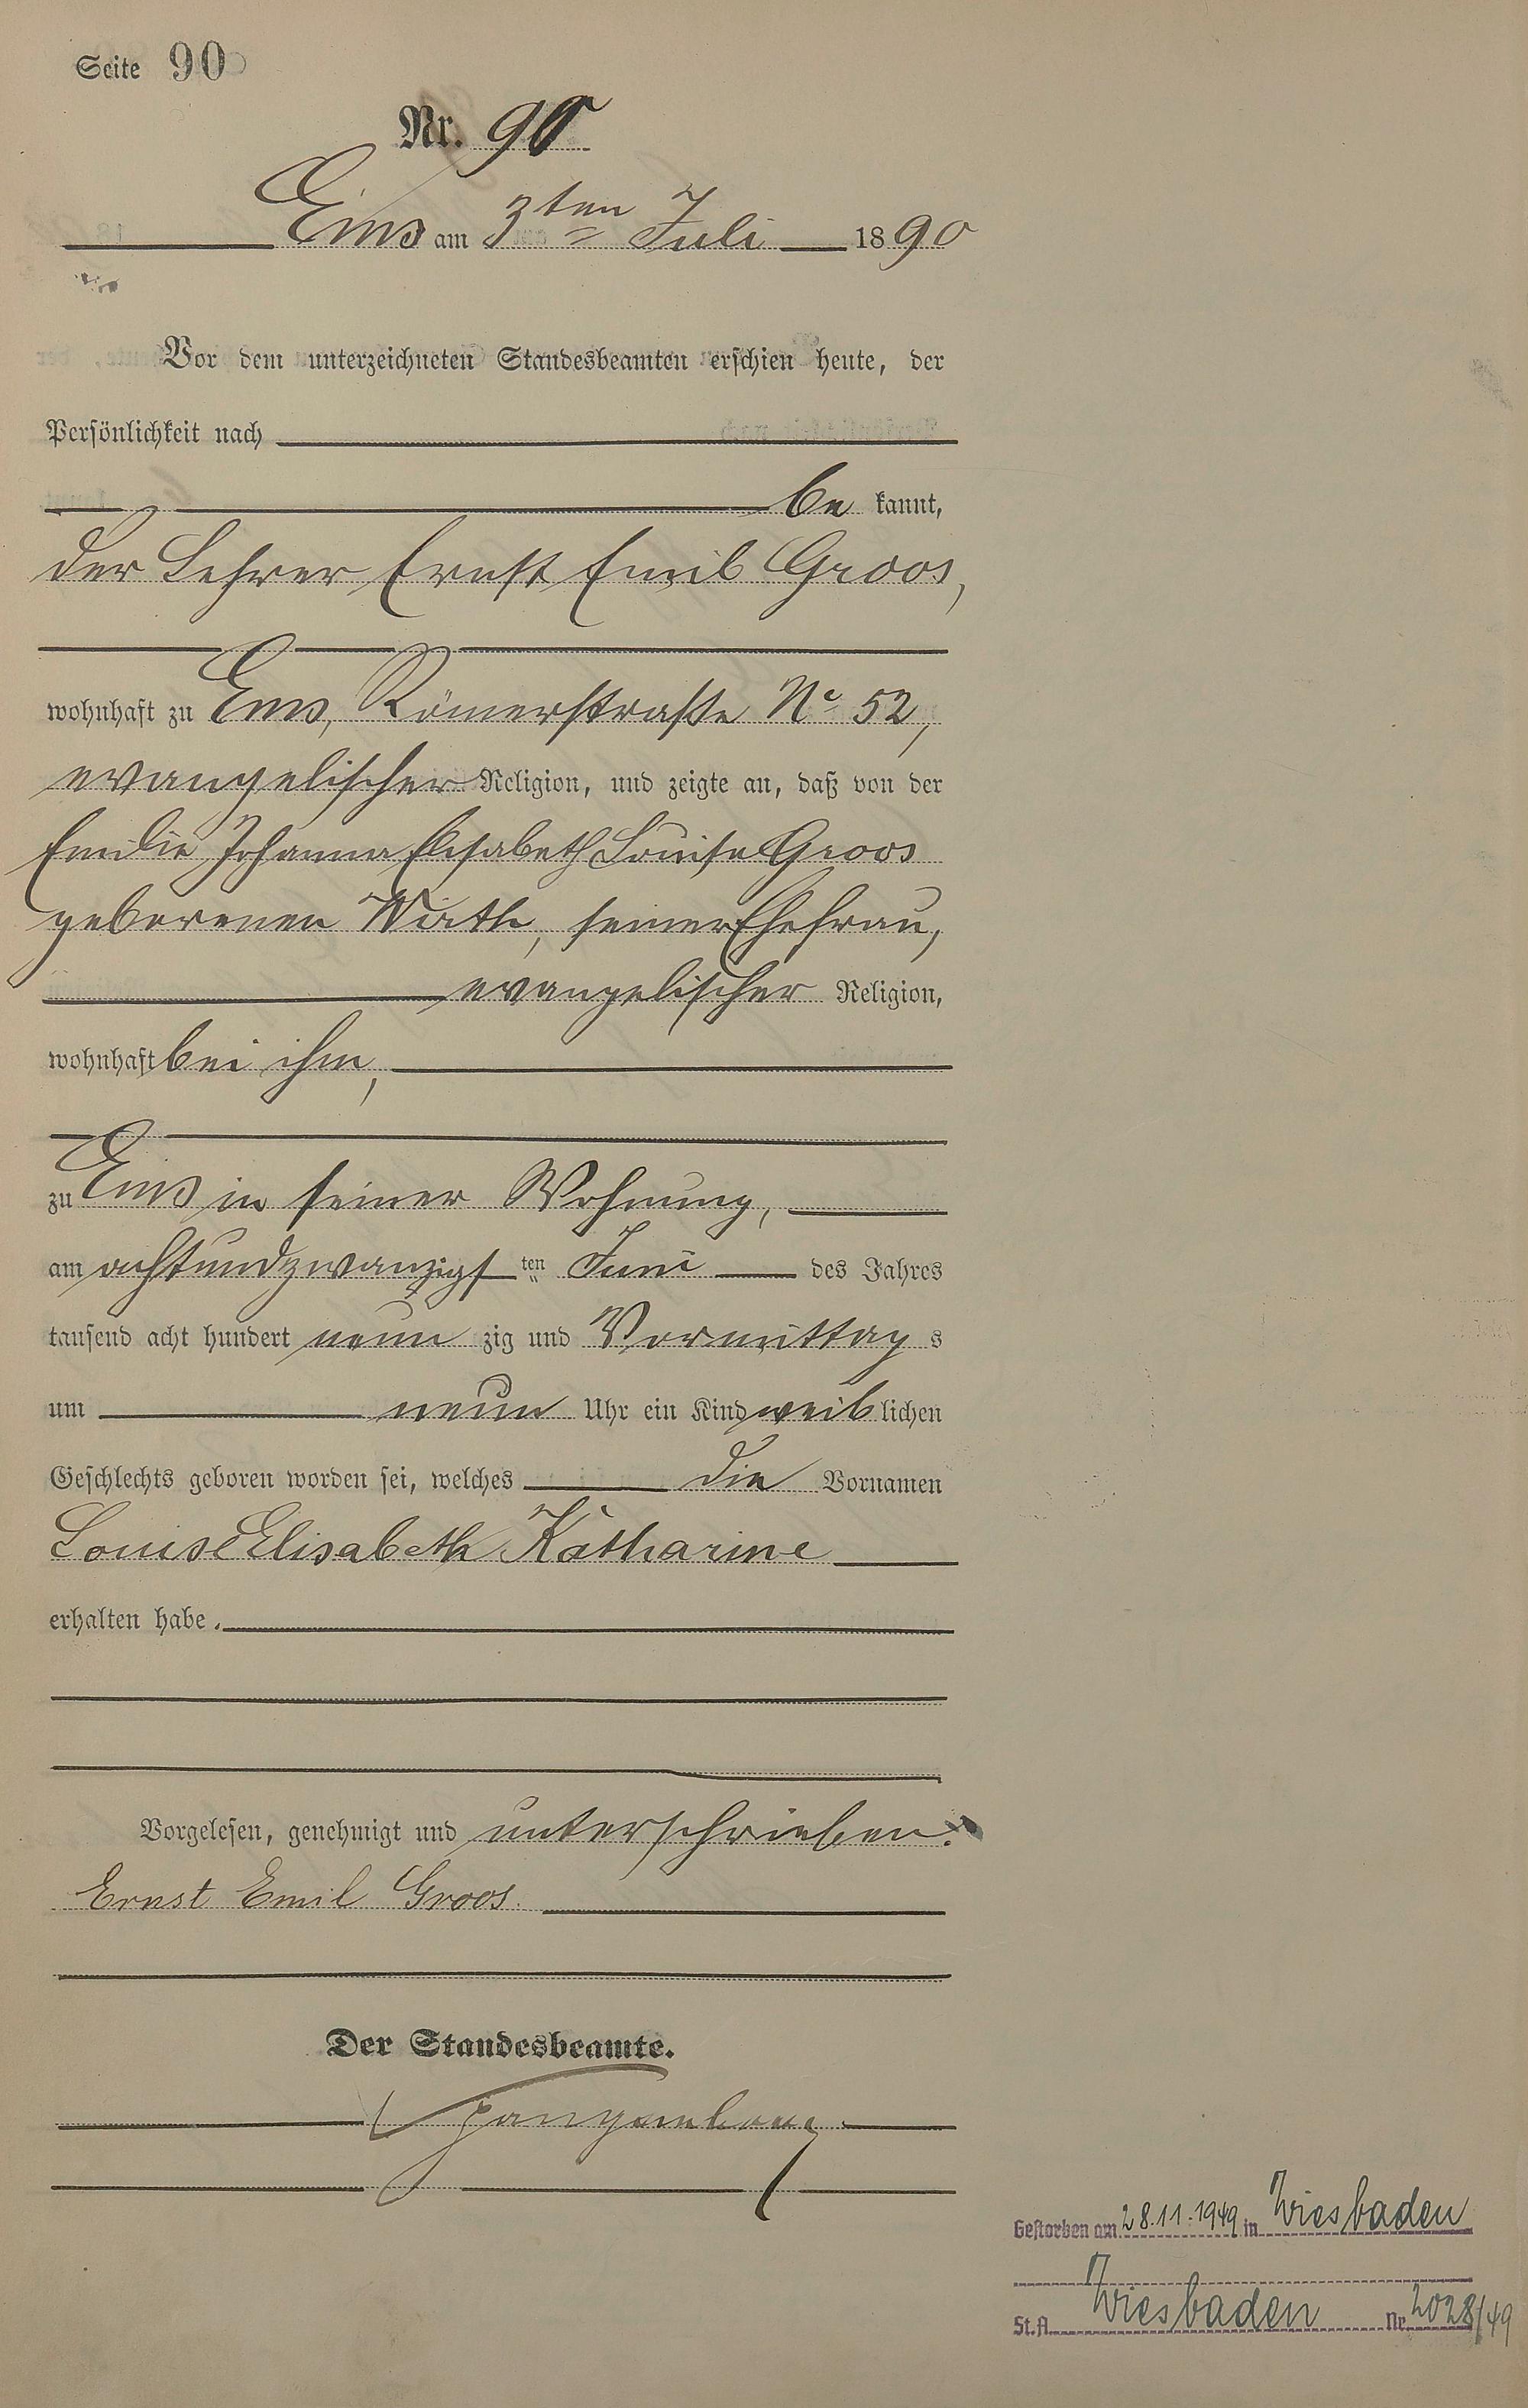 Seite 90
Nr. 90
Ems am 3ten Juli 1890
Vor dem unterzeichneten Standesbeamten erschien heute, der
Persönlichkeit nach
be kannt,
der Lehrer Ernst Emil Groos,
wohnhaft zu Ems, Römerstraße No 52,
evangelischer Religion, und zeigte an, daß von der
Emilie Johanna Elisabeth Louise Groos
geborenen Wirth, seiner Ehefrau,
evangelischer Religion,
wohnhaft bei ihm,
zu Ems in seiner Wohnung,
am achtundzwanzigsten Juni des Jahres
tausend acht hundert neun zig und Vormittag s
um neun Uhr ein Kind weib lichen
Geschlechts geboren worden sei, welches die Vornamen
Louise Elisabeth Katharine
erhalten habe.
Vorgelesen, genehmigt und unterschrieben.
Ernst Emil Groos.
Der Standesbeamte.
Gestorben am 28.11.1949 in Wiesbaden
St.A. Wiesbaden Nr. 2028/49